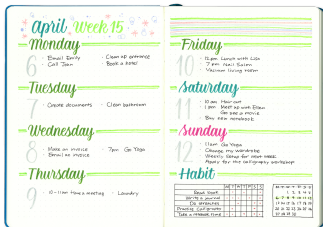 april Week 15
Monday
6
Email Emily
Call John
Clean up entrance
Book a hotel
Tuesday
7
Create documents
Clean bathroom
Wednesday
8
Make an invoice
Email an invoice
7pm Go Yoga
Thursday
9
10-11am Have a meeting
Laundry
Friday
10
12pm Lunch with Lisa
7pm Nail Salon
Vacuum living room
Saturday
11
10am Hair cut
1pm Meet up with Ellen
Go see a movie
Buy new notebook
Sunday
12
11am Go Yoga
Change my wardrobe
Weekly Setup for next week
Apply for the calligraphy workshop
Habit
M T W T F S S
Read book
Write a journal
Do stretches
Practice Calligraphy
Take a relaxed time